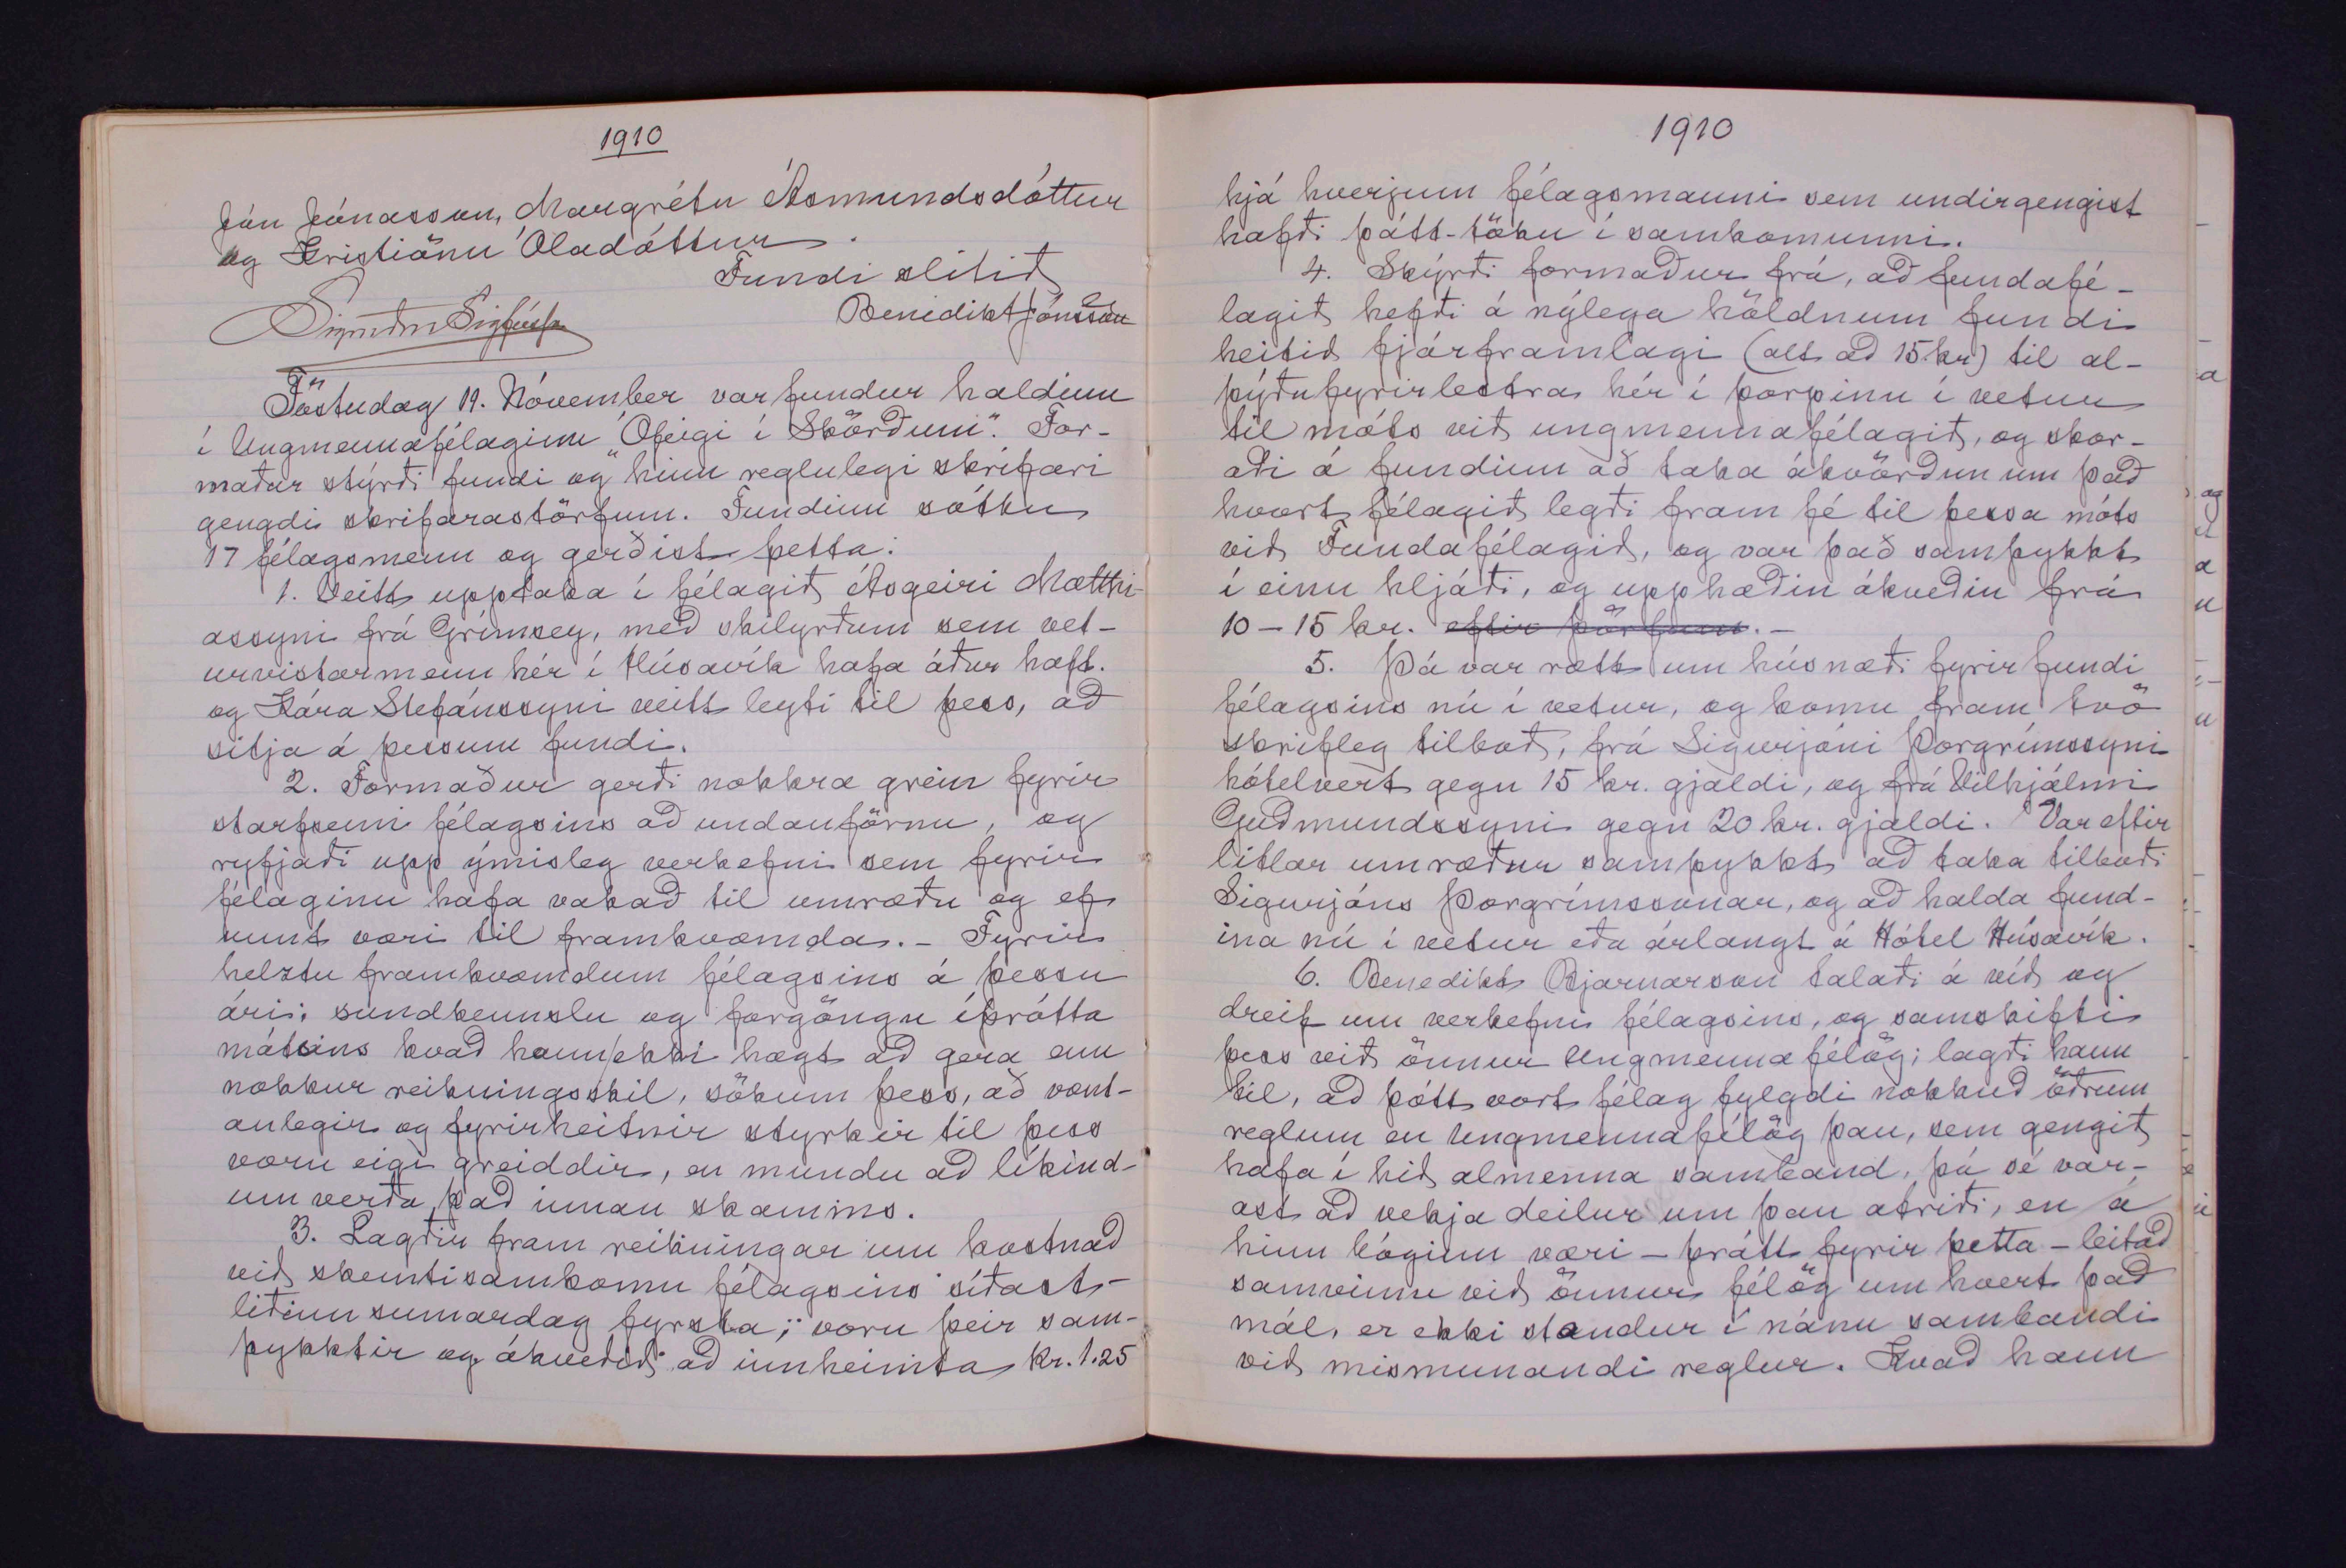 1910
Jón Jónasson, Margrétu Ásmundsdóttur
og Kristiönu Óladóttur.
Fundi slitið
Benedikt Jónsson
Sigurður Sigfússon
Föstudag 19. Nóvember var fundur haldinn
í Ungmennafélaginu "Ófeigi í Skörðum". For-
maður stýrði fundi og hinn reglulegi skrifari
gengdi skrifarastörfum. Fundinn sóttu
17 félagsmenn og gerðist þetta:
1. Veitt upptaka í félagið Ásgeiri Matthi-
assyni frá Grímsey, með skilyrðum sem vet-
urvistarmenn hér í Húsavík hafa áður haft.
og Kára Stefánssyni veitt leyfi til þess, að
sitja á þessum fundi.
2. Formaður gerði nokkra grein fyrir
starfsemi félagsins að undanförnu, og
ryfjaði upp ýmisleg verkefni sem fyrir
félaginu hafa vakað til umræðu og ef
unnt væri til framkvæmda. - Fyrir
helztu framkvæmdum félagsins á þessu
ári; sundkennslu og forgöngu íþrótta
mótsins kvað hann ekki hægt að gera enn
nokkur reikningsskil, sökum þess, að vænt-
anlegir og fyrirheitnir styrkir til þess
væru eigi greiddir, en mundu að líkind-
um verða það innan skamms.
3. Lagðir fram reikningar um kostnað
við skemtisamkomu félagsins síðast-
liðinn sumardag fyrsta; voru þeir sam-
þykktir og ákveðið að innheimta kr. 1.25
1910
hjá hverjum félagsmanni sem undirgengist
hafði þátt-töku í samkomunni.
4. Skýrði formaður frá, að fundafé-
lagið hefði á nýlega höldnum fundi
heitið fjárframlagi (alt að 15 kr) til al-
þýðufyrirlestra hér í þorpinu í vetur
til móts við ungmennafélagið, og skor-
aði á fundinn að taka ákvörðun um það
hvort félagið legði fram fé til þessa móts
við Fundafélagið, og var það samþykkt
í einu hljóði, og upphæðin ákveðin frá
10 - 15 kr. eftir þörfum. -
5. Þá var rætt um húsnæði fyrir fundi
félagsins nú í vetur, og komu fram tvö
skrifleg tilboð, frá Sigurjóni Þorgrímssyni
hótelvert gegn 15 kr. gjaldi, og frá Vilhjálmi
Guðmundssyni gegn 20 kr. gjaldi. Var eftir
litlar umræður samþykkt að taka tilboði
Sigurjóns Þorgrímssonar, og að halda fund-
ina nú í vetur eða árlangt á Hótel Húsavík.
6. Benedikt Bjarnarson talaði á víð og
dreif um verkefni félagsins, og samskifti
þess við önnur Ungmennafélög; lagði hann
til, að þótt vort félag fylgdi nokkuð öðrum
reglum en Ungmennafélög þau, sem gengið
hafa í hið almenna samband, þá sé var-
ast að vekja deilur um þau atriði, en á
hinn bóginn væri - þrátt fyrir þetta - leitað
samvinnu við önnur félög um hvert það
mál, er ekki standur í nánu sambandi
við mismunandi reglur. Kvað hann